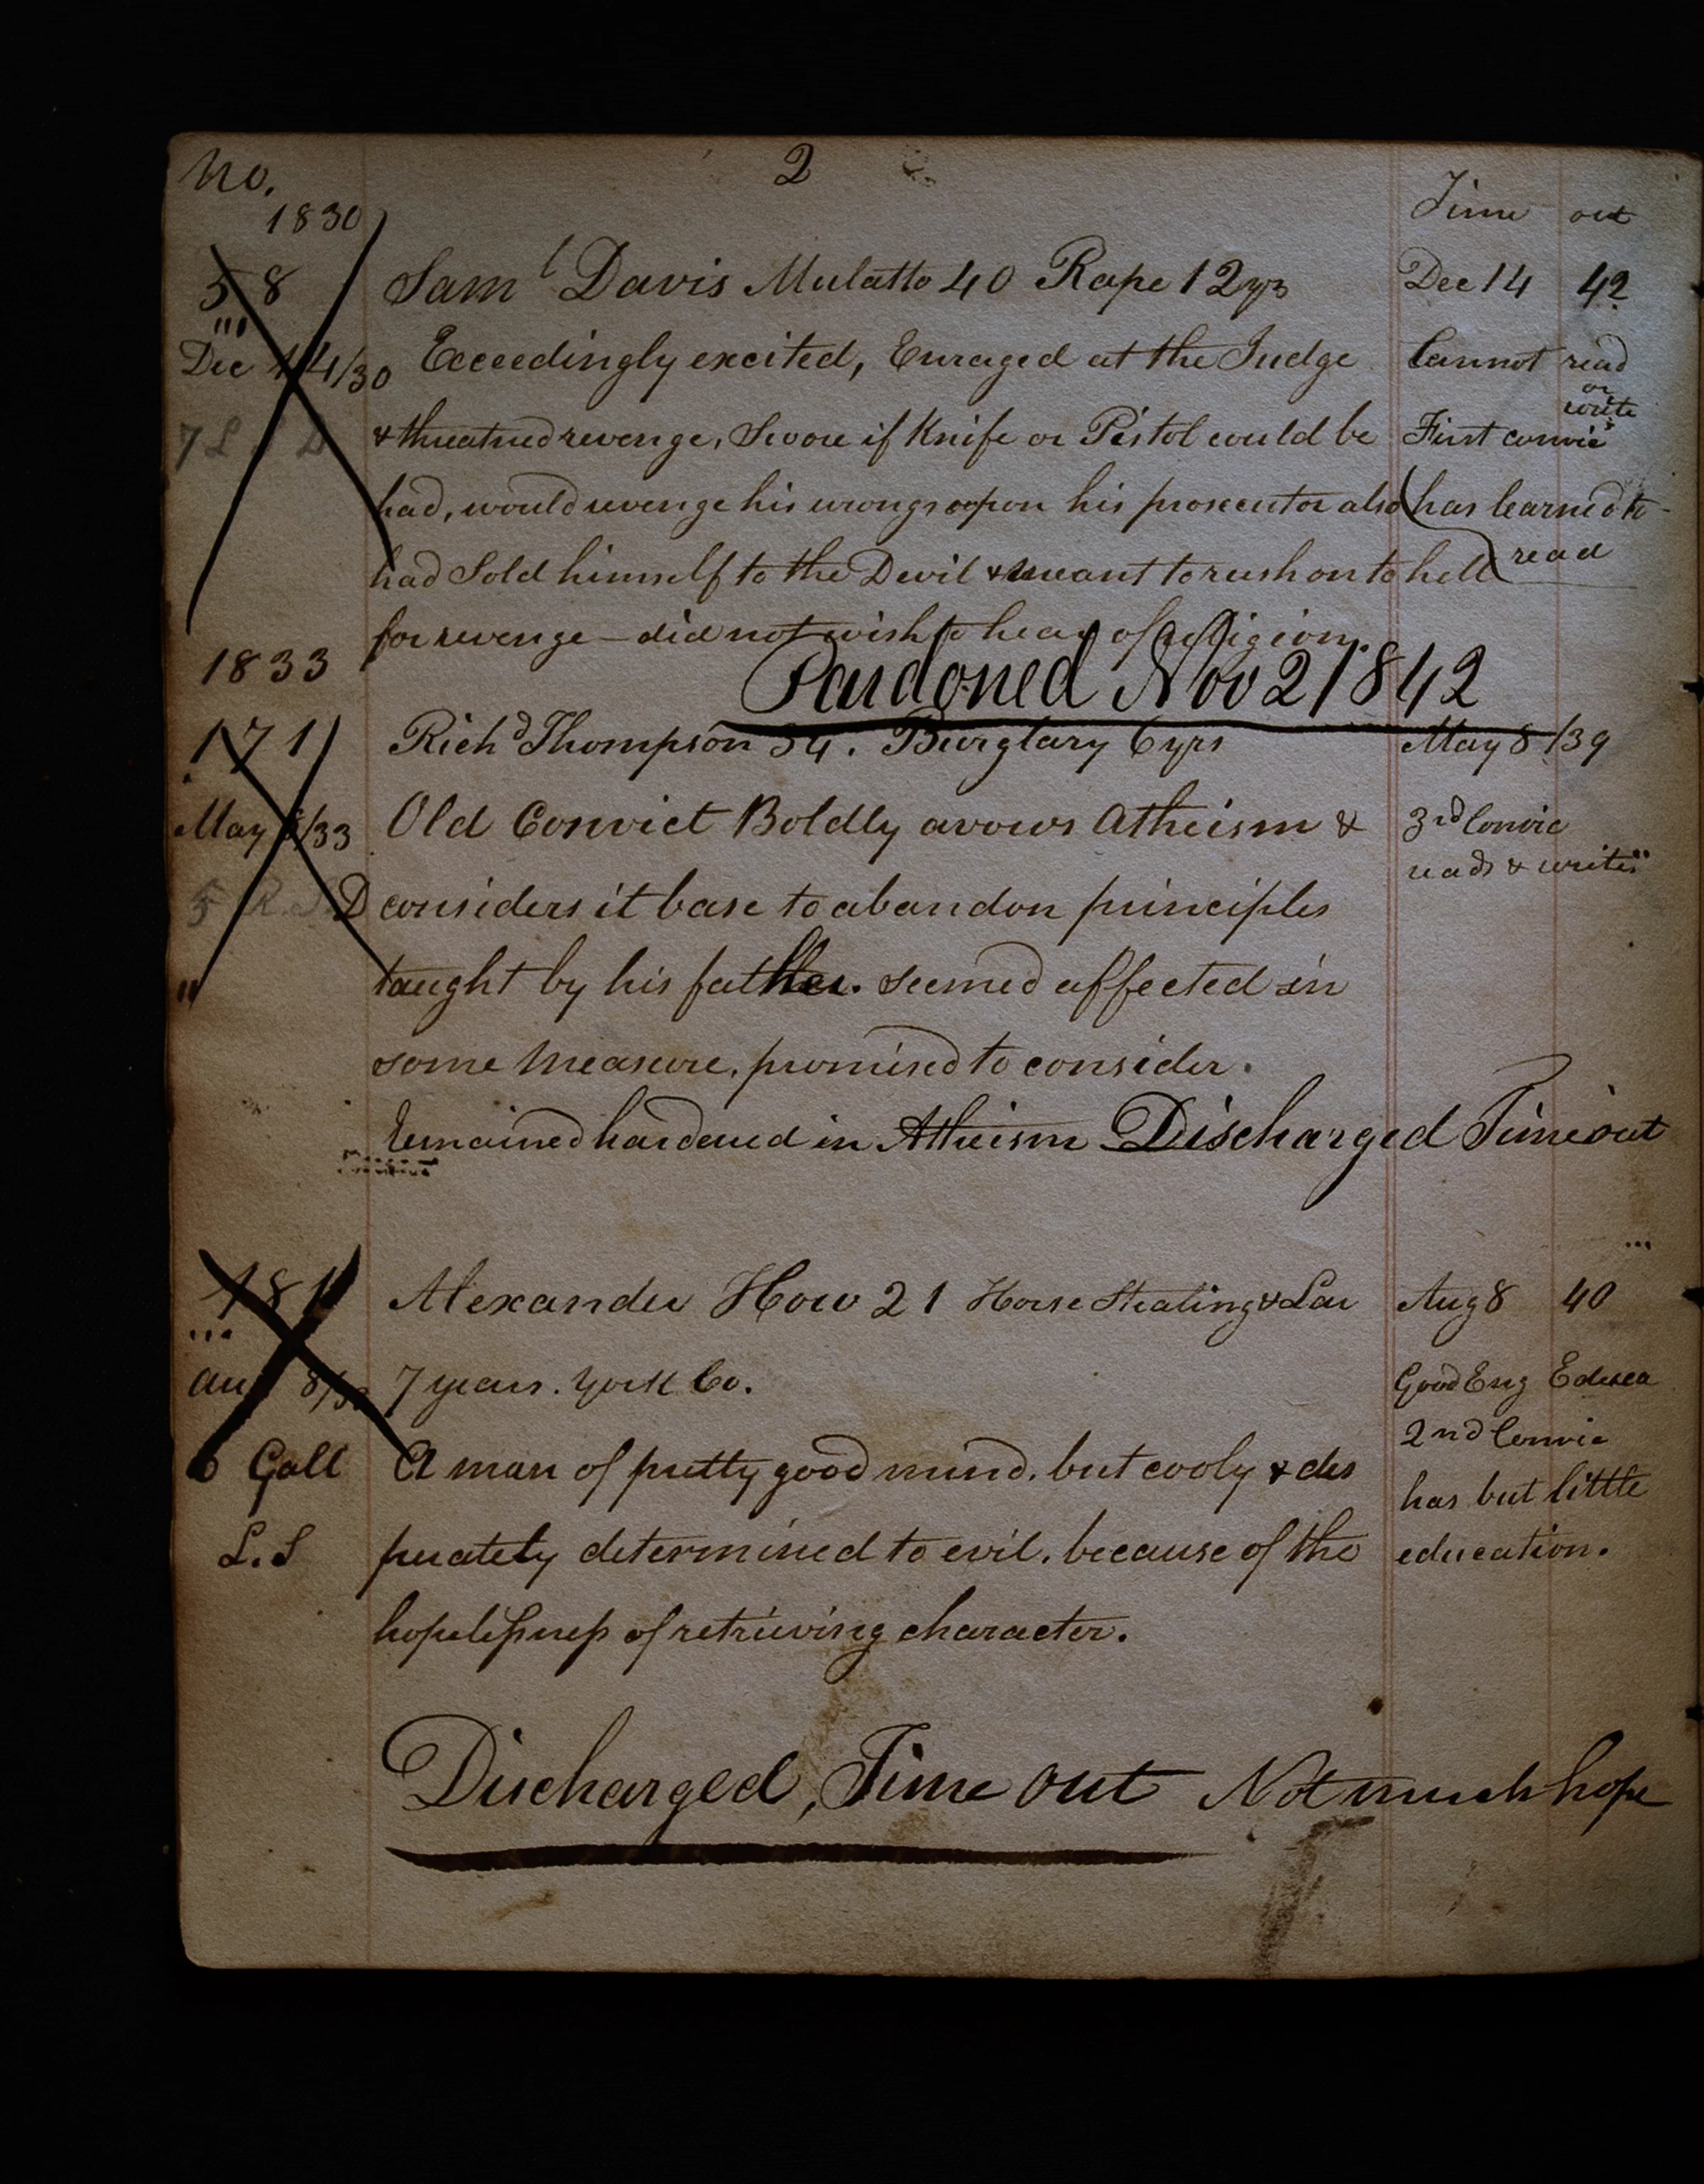 No. 2
1830 Time out
58 Saml Davis Mulatto 40 Rape 12 yrs Dec 14 42
Dec 14/30 Exceedingly excited, Enraged at the Judge Cannot read
or write
& threatned revenge, Swore if Knife or Pistol could be First convic
had, would revenge his wrongs upon his prosecutor also (has learned to
had Sold himself to the Devil & meant to rush on to hell read
for revenge – did not wish to hear of religion.
1833 Pardoned Nov 2 1842
171 Richd Thompson 34. Burglary 6 yrs May 8 /39
May 8/33 Old Convict Boldly avows Atheism & 3rd Convic
reads & writes
5 R. S. D considers it base to abandon principles
taught by his father. seemed affected in
some measure, promised to consider.
Remained hardened in Atheism Discharged Time out
181 Alexander How 21 Horse Stealing & Lar Aug 8 40
Aug 8/33 7 years. York Co. Good Eng Educa
2nd Convic
6 Gall A man of pretty good mind, but cooly & des has but little
L. S perately determined to evil, because of the education.
hopelessness of retrieving character.
Discharged, Time out Not much hope